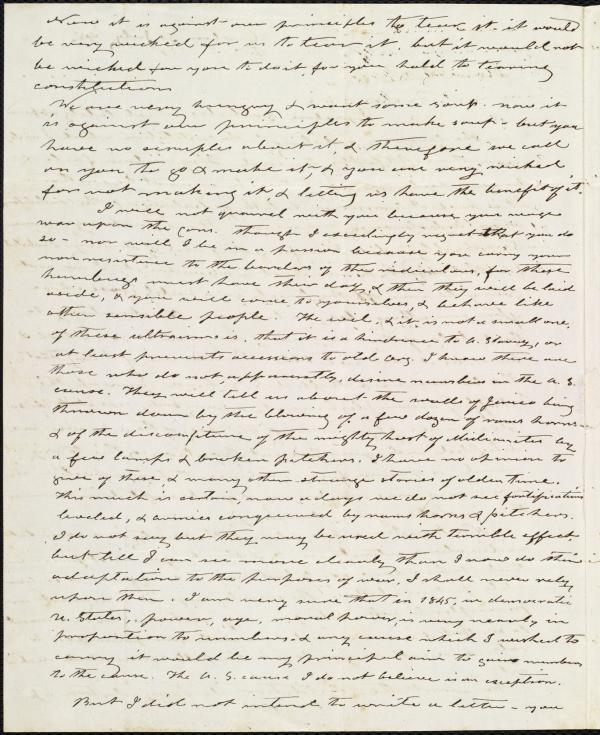 Now it is against our principles to tear it. it would
be very wicked for us to tear it, but it would not
be wicked for you to do it, for you hold to tearing
constitutions
We are very hungry & want some soup. now it
is against our principles to make soup - but you
have no scruples about it & therefore we call
on you to go & make it, & you are very wicked
for not making it, & letting us have the benefit of it.
I will not quarrel with you because you wage
war upon the Cons. though I exceedingly regret that you do
so - nor will I be in a passion because you carry your
non resistance to the borders of the ridiculous, for these
humbugs must have their day, & then they will be laid
aside, & you will come to yourselves, & behave like
other sensible people. The evil, & it is not a small one,
of these ultraisms is, that it is a hindrance to A. Slavery, or
at least prevents accessions to old org. I know there are
those who do not, apparently, desire numbers in the A. S.
cause. They will tell us about the walls of Jerico being
thrown down by the blowing of a few dozen of rams horns -
& of the discomfiture of the mighty host of Midianites by
a few lamps & broken pitchers. I have no opinion to
give of these, & many other strange stories of olden time.
This much is certain, now a days we do not see fortifications
leveled, & armies conquered by rams horns & pitchers.
I do not say but they may be used with terrible effect
but till I can see more clearly than I now do their
adaptation to the purposes of war, I shall never rely
upon them. I am very sure that in 1845, in democratic
U. States, power, aye, moral power, is very nearly in
proportion to numbers, & any cause which I wished to
carry it would be my principal aim to gain numbers
to the cause. The A. S. cause I do not believe is an exception.
But I did not intend to write a letter - you